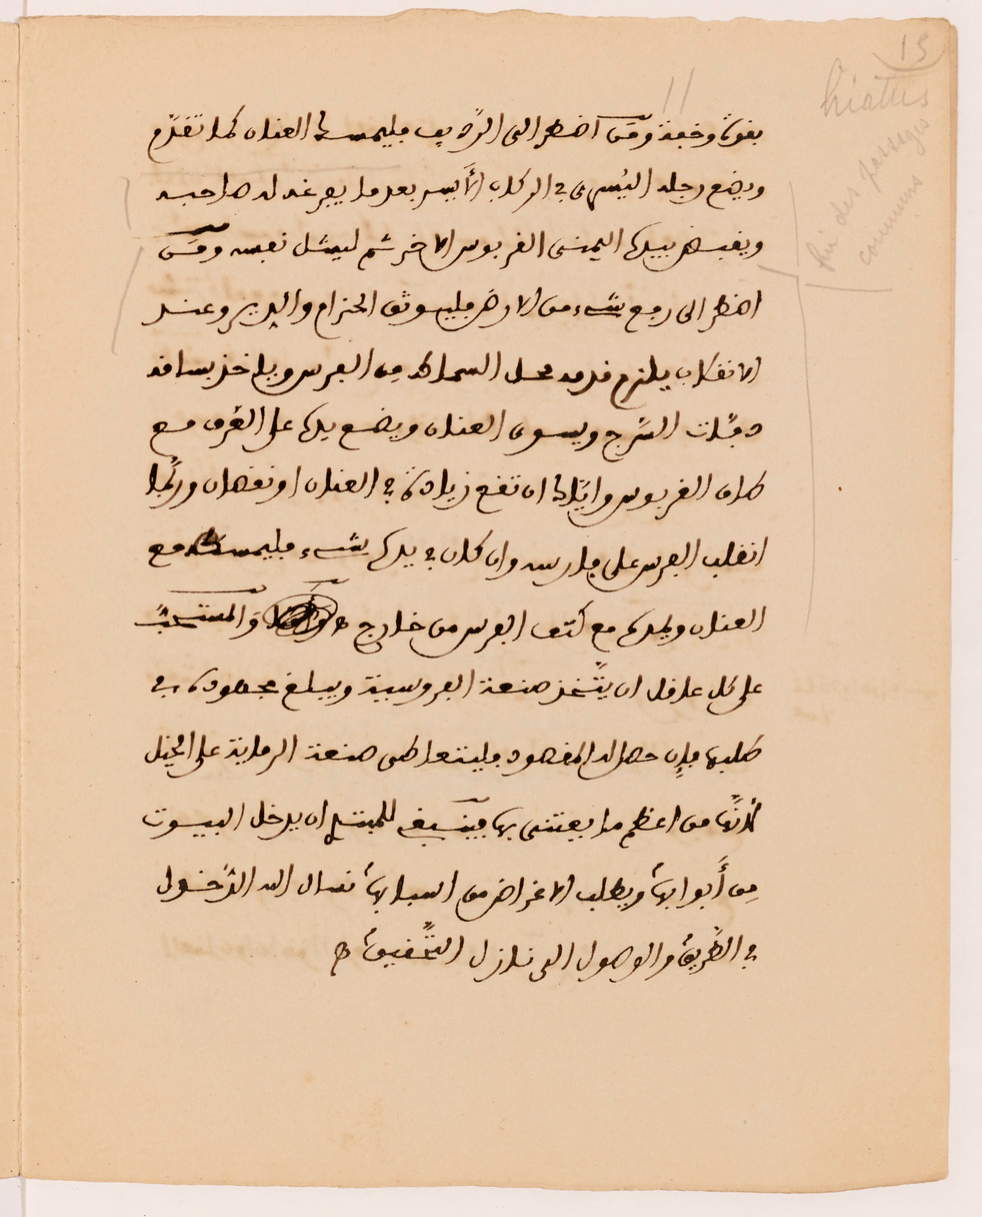 15
11
hiatus
fin des passages
communs
بقوة وخفة ومتى اضطر الى الرديف فليمسك العنان كما تقدّم
ويضع رجله اليُسرى في الركاب الأيسر بعد ما يفرغه له صاحبه
ويقبض بيده اليمنى القربوس الآخر ثم ليشل نفسه ومتى
اضطر الى رفع شيء من الارض فليوثق الحزام والدير وعند
الانقلاب يلزم قدمه محل السماط من الفرس وياخذ بساقه
دفّات السّرج ويسوي العنان ويضع يده على العُرف مع
طرف القربوس وايّاك ان تقع زيادة في العنان او نقصان وربّما
انقلب الفرس على فارسه وان كان في يده شيء فليمسكه مع
العنان ويمده مع كتف الفرس من خارج والمستحبّ
على كل عاقل ان يتّخذ صنعة الفروسية ويبلغ مجهوده في
طلبها فإن حصل له المقصود فليتعاطى صنعة الرماية على الخيل
لأنّها من اعظم ما يعتنى بها فينبغي للمبتدي ان يدخل البيوت
من أبوابها ويطلب الاغراض من اسبابها نسال الله الدّخول
في الطّريق والوصول الى منازل التّحقيق